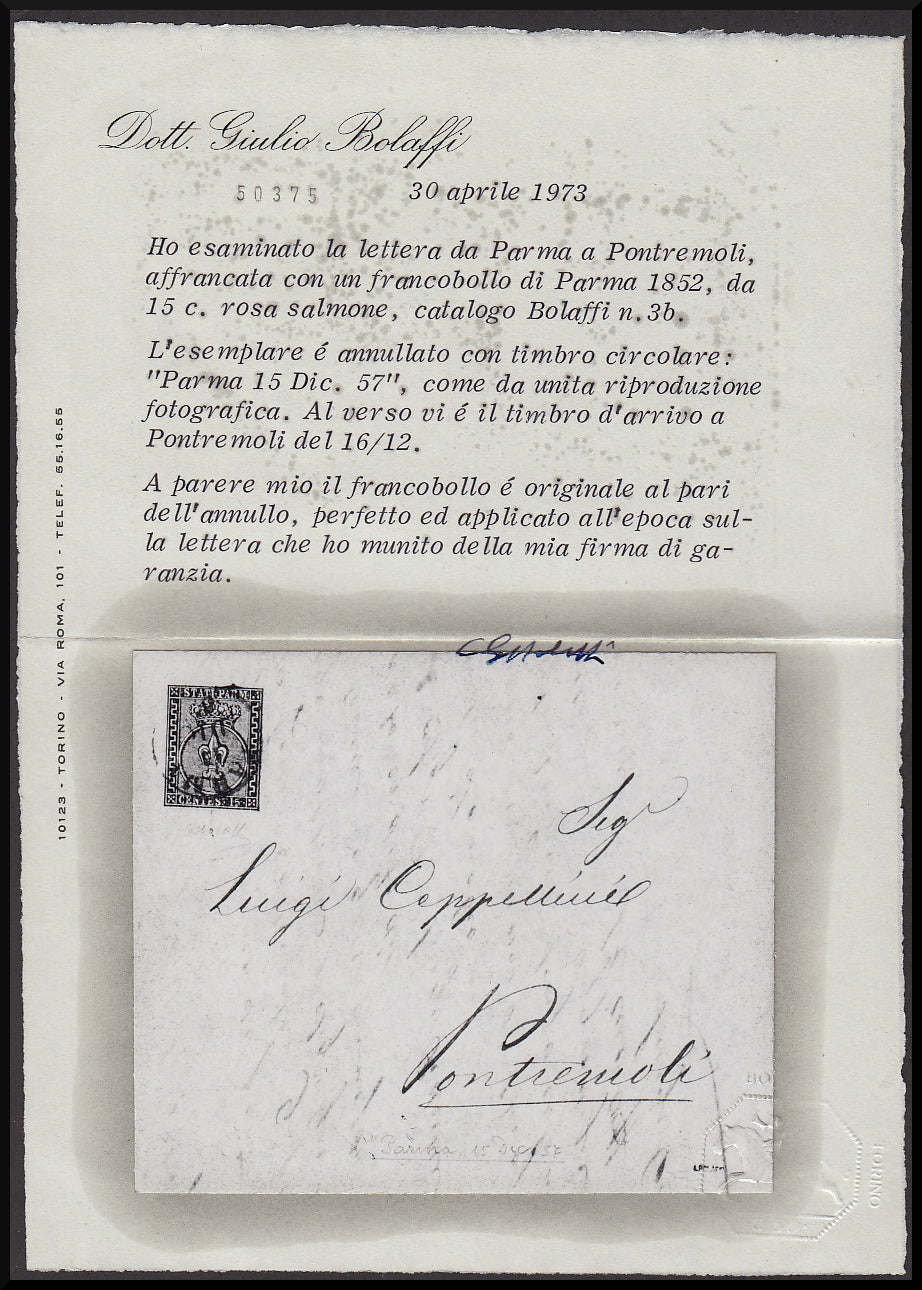 Dott. Giulio Bolaffi
50375 30 aprile 1973
Ho esaminato la lettera da Parma a Pontremoli,
affrancata con un francobollo di Parma 1852, da
15 c. rosa salmone, catalogo Bolaffi n.3b.
L'esemplare é annullato con timbro circolare:
"Parma 15 Dic. 57", come da unita riproduzione
fotografica. Al verso vi é il timbro d'arrivo a
Pontremoli del 16/12.
A parere mio il francobollo é originale al pari
dell'annullo, perfetto ed applicato all'epoca sul-
la lettera che ho munito della mia firma di ga-
ranzia.
10123 - TORINO - VIA ROMA, 101 - TELEF. 55.16.55
STATI PARM
CENTES. 15
Sigr
Luigi Coppellini
Pontremoli
Parma 15 Dic 57
TORINO